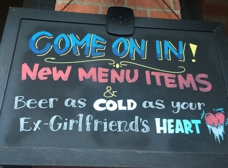 COME ON IN!
NEW MENU ITEMS
&
Beer as COLD as your
Ex-Girlfriend's HEART